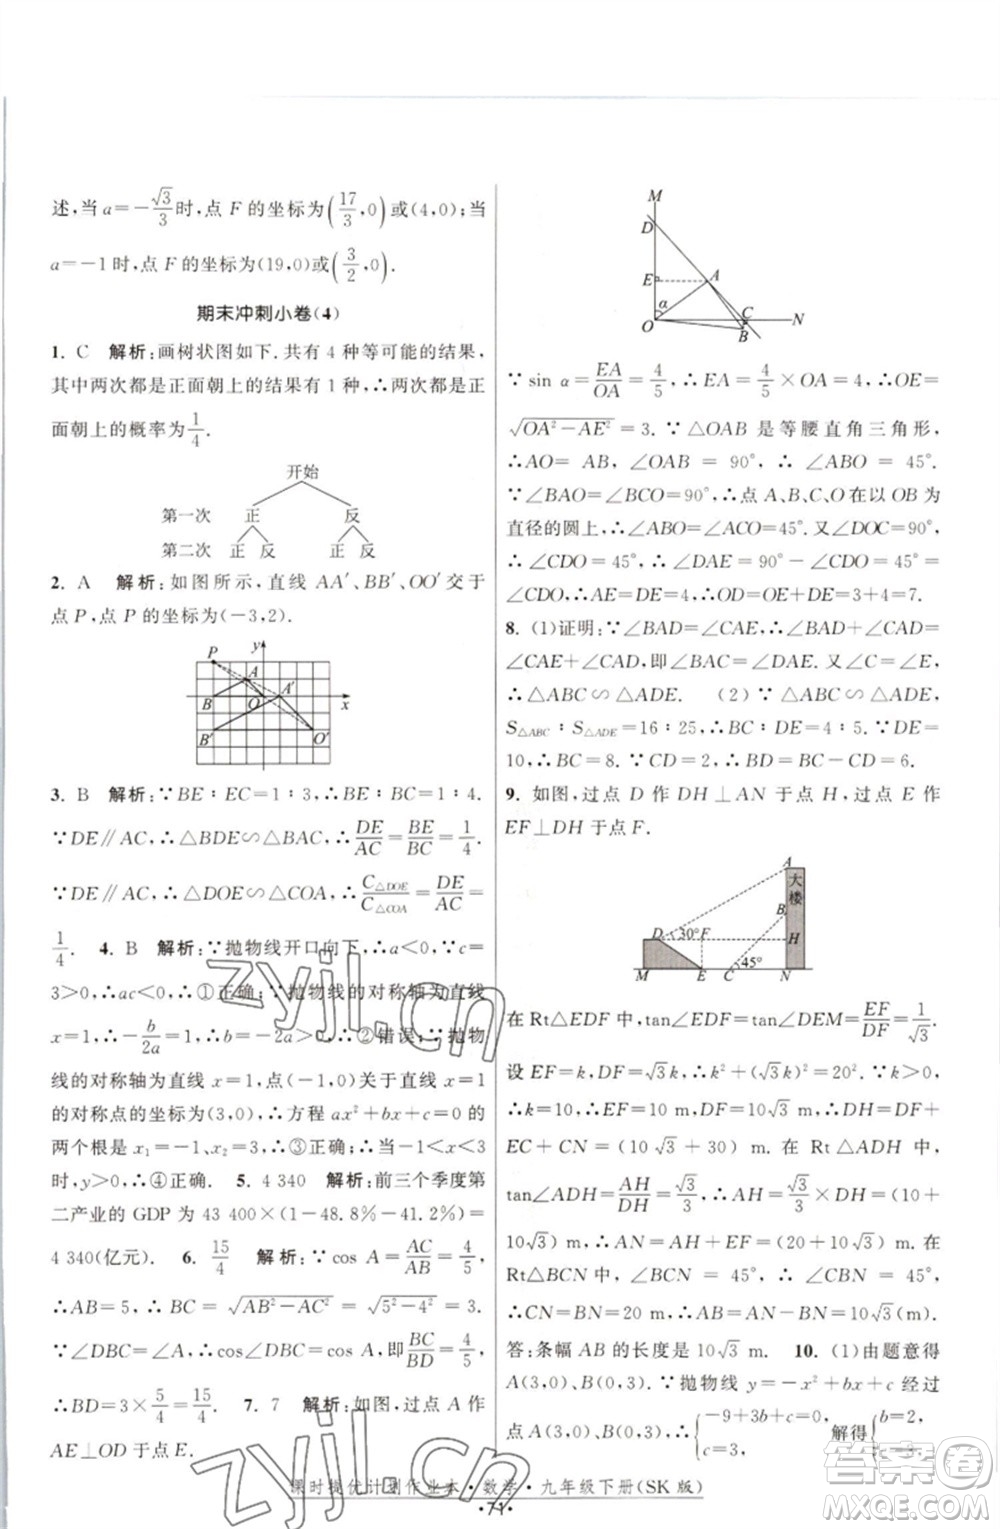 述,当 a=-√3/3时,点 F 的坐标为(17/3,0)或(4,0);当
a=-1时,点F的坐标为(19,0)或(3/2,0).
期末冲刺小卷(4)
1. C 解析:画树状图如下.共有 4 种等可能的结果,
其中两次都是正面朝上的结果有 1 种,∴两次都是正
面朝上的概率为1/4.
开始
第一次 正 反
第二次 正 反 正 反
2. A 解析:如图所示,直线 AA′、BB′、OO′交于
点 P,点 P 的坐标为(-3,2).
P y
A
B O A′ x
B′ O′
3. B 解析:∵BE∶EC=1∶3,∴BE∶BC=1∶4.
∵DE∥AC,∴△BDE∽△BAC,∴DE/AC=BE/BC=1/4.
∵DE∥AC,∴△DOE∽△COA,∴C△DOE/C△COA=DE/AC=
1/4. 4. B 解析:∵抛物线开口向下,∴a<0,∵c=
3>0,∴ac<0,∴①正确;∵抛物线的对称轴为直线
x=1,∴-b/2a=1,∴b=-2a,∴②错误;∵抛物
线的对称轴为直线 x=1,点(-1,0)关于直线 x=1
的对称点的坐标为(3,0),∴方程 ax²+bx+c=0的
两个根是x₁=-1,x₂=3,∴③正确;∴当-1<x<3
时,y>0,∴④正确. 5. 4 340 解析:前三个季度第
二产业的 GDP 为 43 400×(1-48.8%-41.2%)=
4 340(亿元). 6. 15/4 解析:∵cos A=AC/AB=4/5,
∴AB=5,∴BC=√(AB²-AC²)=√(5²-4²)=3.
∵∠DBC=∠A,∴cos∠DBC=cos A,即BC/BD=4/5,
∴BD=3×5/4=15/4. 7. 7 解析:如图,过点 A 作
AE⊥OD 于点 E.
M
D
E A
α C
O B N
∵sin α=EA/OA=4/5,∴EA=4/5×OA=4,∴OE=
√(OA²-AE²)=3.∵△OAB 是等腰直角三角形,
∴AO=AB,∠OAB=90°,∴∠ABO=45°.
∵∠BAO=∠BCO=90°,∴点 A、B、C、O 在以 OB 为
直径的圆上,∴∠ABO=∠ACO=45°.又∠DOC=90°,
∴∠CDO=45°.∵∠DAE=90°-∠CDO=45°=
∠CDO,∴AE=DE=4,∴OD=OE+DE=3+4=7.
8. (1)证明:∵∠BAD=∠CAE,∴∠BAD+∠CAD=
∠CAE+∠CAD,即∠BAC=∠DAE.又∵∠B=∠D,
∴△ABC∽△ADE. (2) ∵△ABC∽△ADE,
S△ABC∶S△ADE=16∶25,∴BC∶DE=4∶5.∵DE=
10,∴BC=8.∵EC=2,∴CD=DE-EC-BC=6.
9. 如图,过点 D 作 DH⊥AN 于点 H,过点 E 作
EF⊥DH 于点 F.
A
大楼
B
D 30° F H
45°
M E C N
在 Rt△EDF 中,tan∠EDF=tan∠DEM=EF/DF=1/√3.
设 EF=k,则DF=√3k,∴k²+(√3k)²=20².∵k>0,
∴k=10,∴EF=10 m,DF=10√3 m,∴DH=DF+
EC+CN=(10√3+30) m.在 Rt△ADH 中,
tan∠ADH=AH/DH=√3/3,∴AH=√3/3×(10√3+30)=
(10+10√3) m,∴AN=AH+EF=(20+10√3) m.在
Rt△BCN 中,∵∠BCN=45°,∴∠CBN=45°,
∴CN=BN=20 m,∴AB=AN-BN=10√3(m).
答:条幅 AB 的长度是10√3 m. 10. (1)由题意得
A(3,0),B(0,3).∵抛物线 y=-x²+bx+c 经过
点A(3,0)、B(0,3),∴{-9+3b+c=0, c=3, 解得{b=2, c=3,
课时提优计划作业本·数学·九年级下册(SK版)
·71·
zyjl.cn
zyjl.cn
答案圈
MXQE.COM